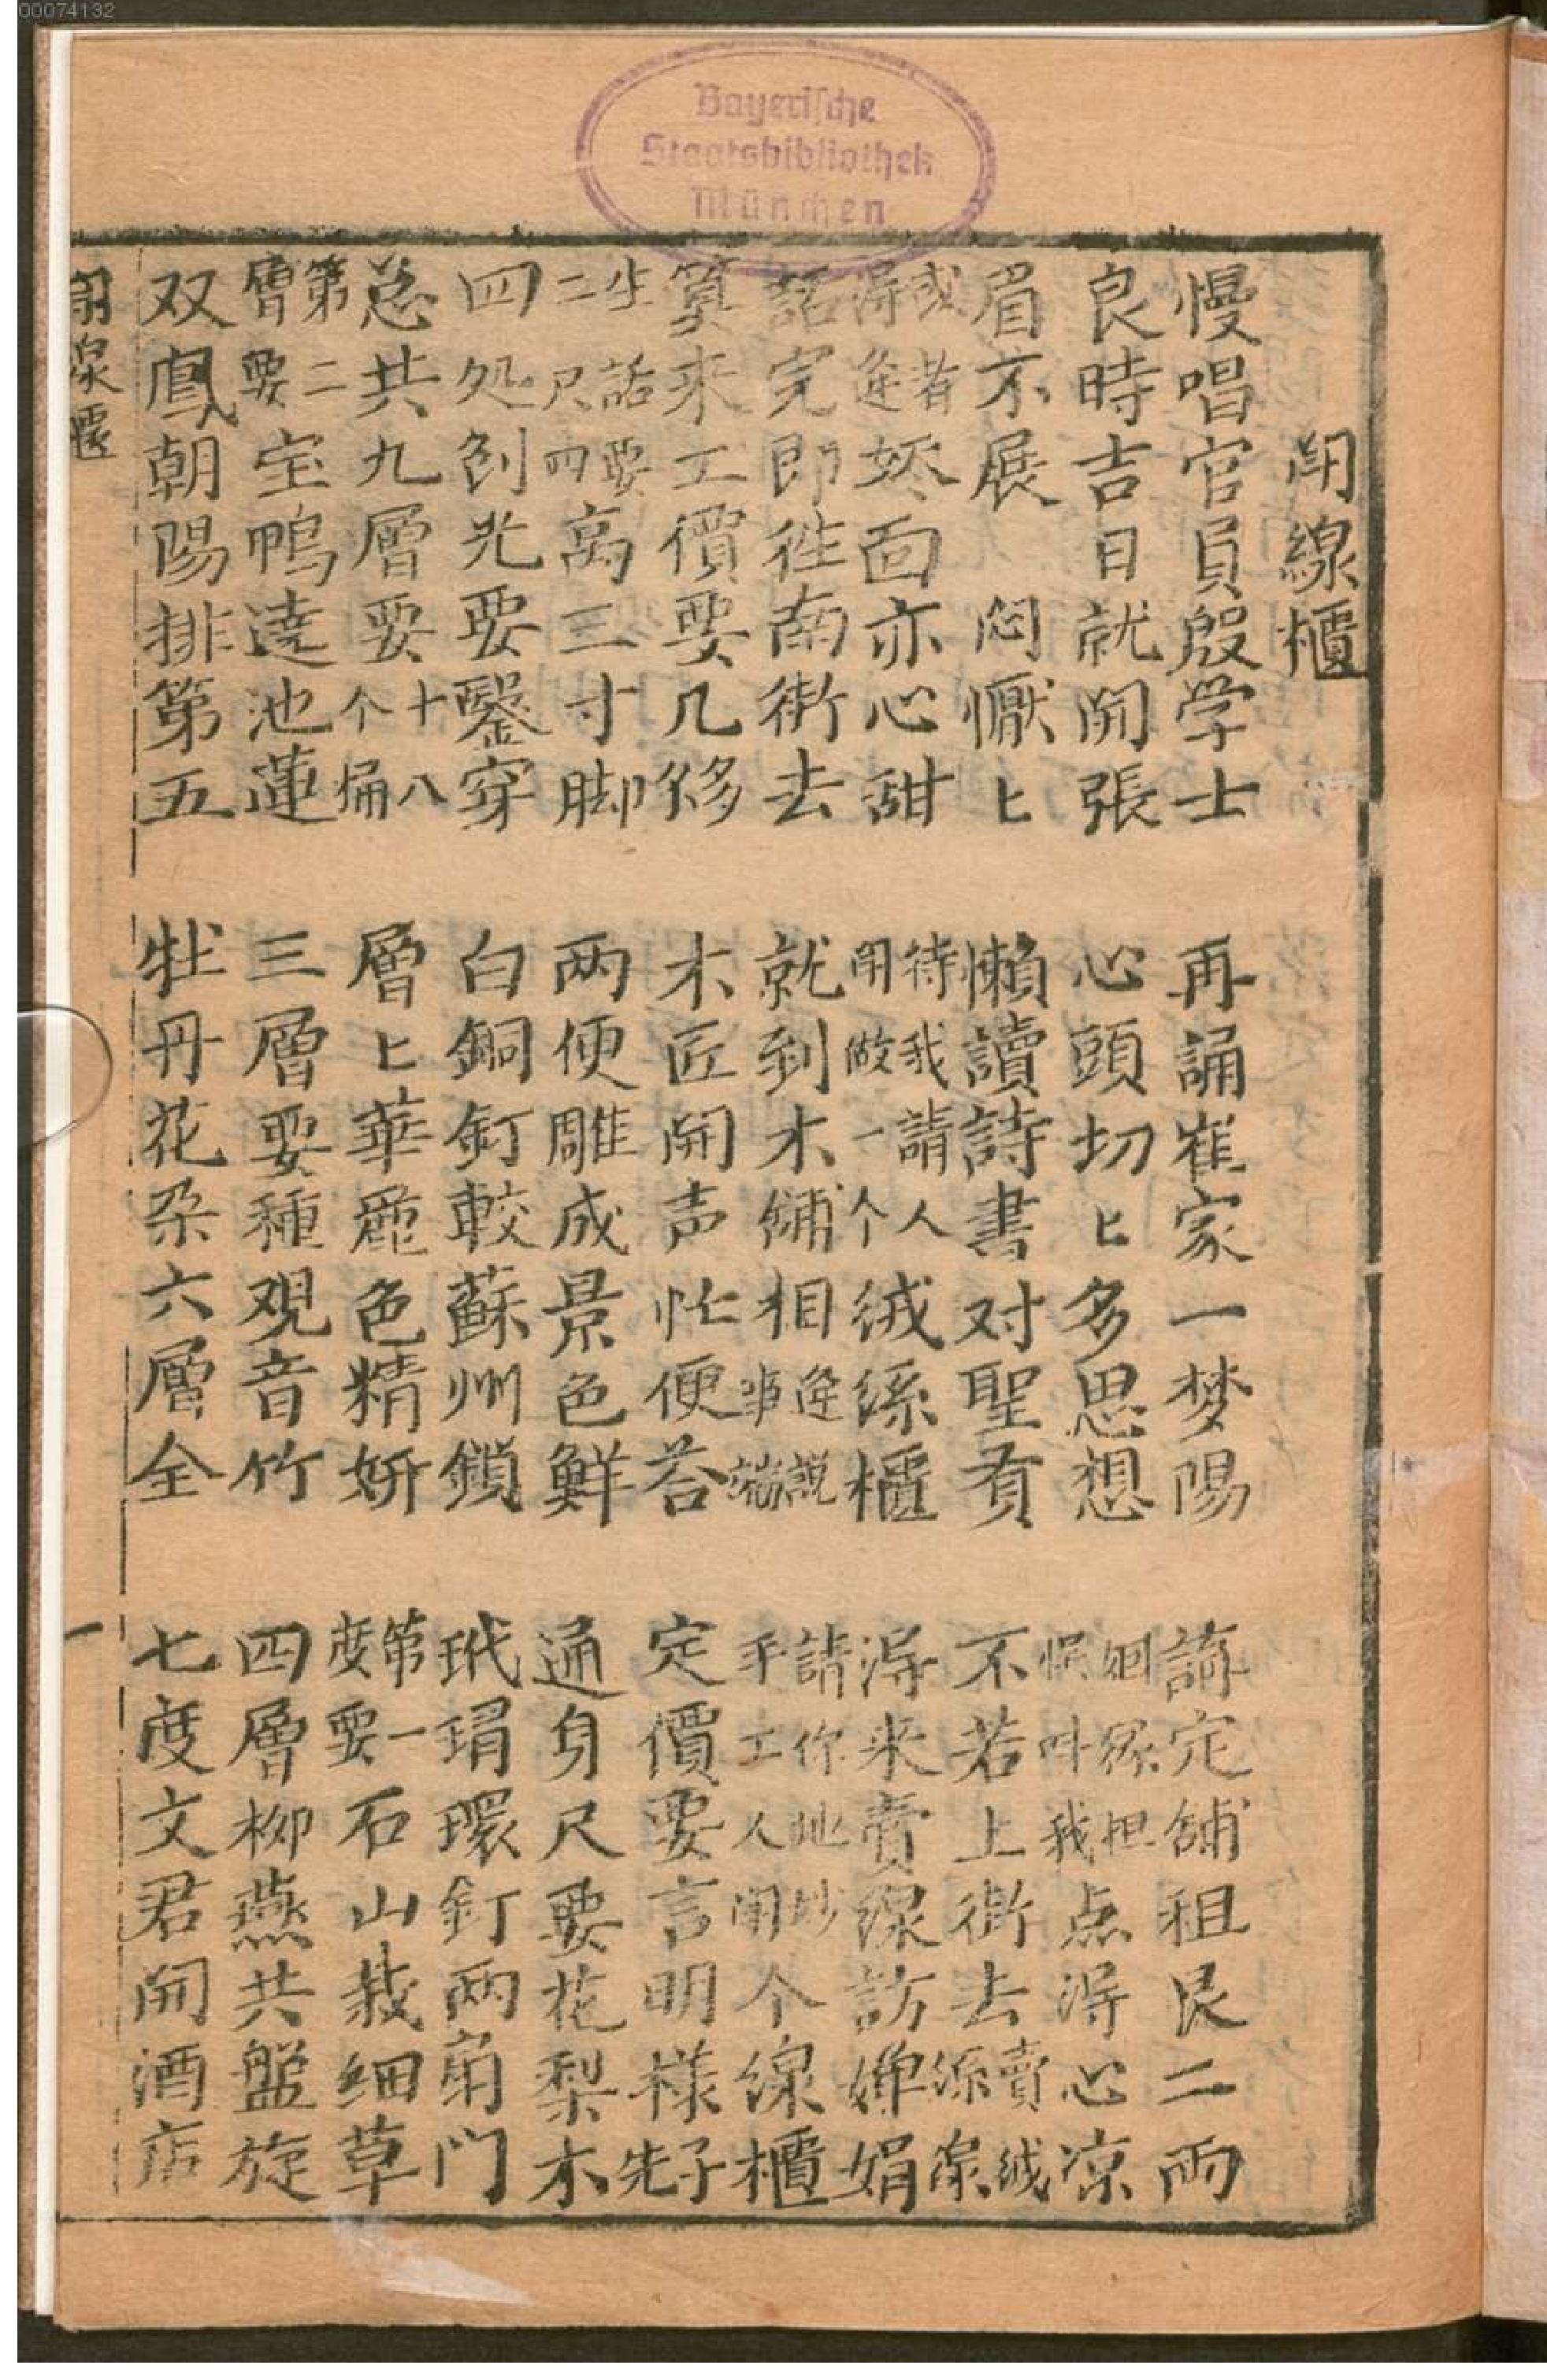 00074132
Bayerische
Staatsbibliothek
München
閗線櫃
慢唱官員殷学士 再誦崔家一梦陽 講定舖租艮二両
良時吉日就開張 心頭切匕多思想 姻緣担悮叫我点得心凉
眉不展 悶懨匕 懶讀詩書对聖賢 不若上街去賣絨綫線
或者得逢妖面亦心甜 待我請人閗做一个絨綫櫃 得来賣線訪嬋娟
話完即徃南街去 就到木舖相逢說事端 請你地妙手工人閗个線櫃
算来工價要几够 木匠開声忙便答 定價要言明様子先
坐話要二尺四高三寸脚 两便雕成景色鮮 通身尺要花梨木
四処刨光要鑿穿 白銅釘較蘇州鎖 玳瑁環釘两扇门
总共九層要十八个桶 層匕華麗色精妍 第一度要石山栽细草
第二層要宝鴨遶池蓮 三層要種观音竹 四層柳燕共盤旋
双鳳朝陽排第五 牡丹花朶六層全 七度文君開酒店
閗線櫃 一